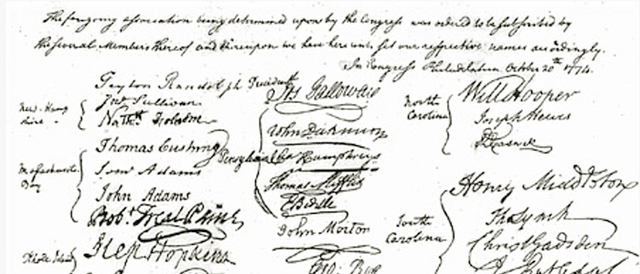 The foregoing association being determined upon by the Congress was ordered to be subscribed by
the several Members thereof and thereupon we have hereunto set our respective names accordingly.
In Congress Philadelphia October 20th 1774.
Peyton Randolph President
New Hamp
shire
Jno Sullivan
Nathl Folsom
Massachusetts
Bay
Thomas Cushing
Saml Adams
John Adams
Robt Treat Paine
Rhode Island
Step Hopkins
Pennsylvania
Jos Galloway
John Dickinson
Cha Humphreys
Thomas Mifflin
E Biddle
John Morton
Geo: Ross
North
Carolina
Will Hooper
Joseph Hewes
R Caswell
South
Carolina
Henry Middleton
Tho Lynch
Christ Gadsden
J Rutledge